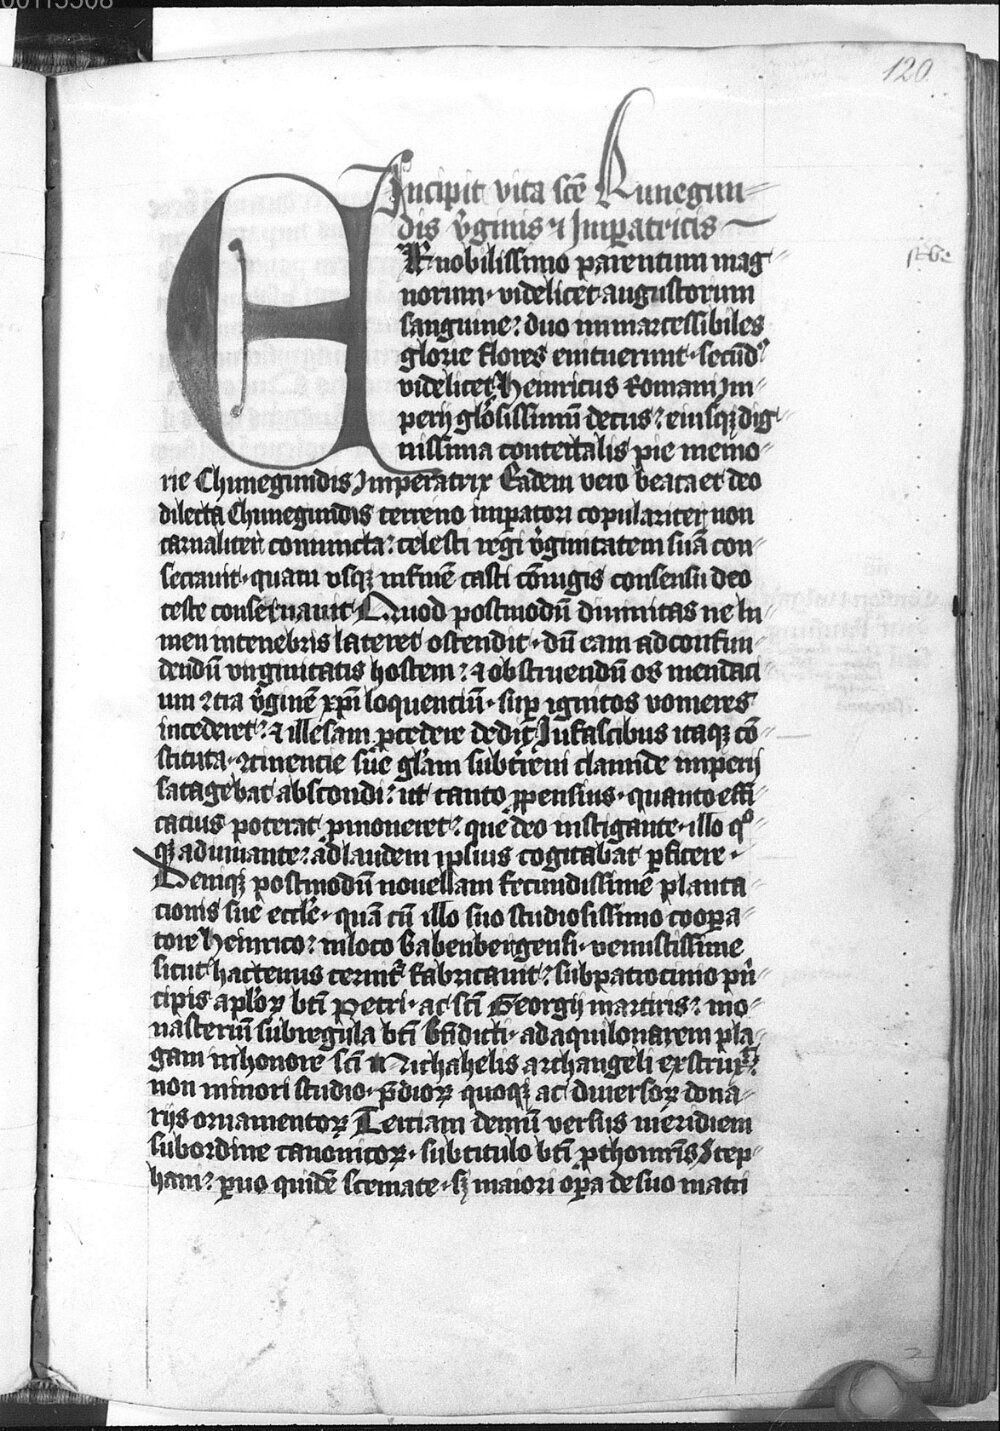 120
Incipit vita scē Kunegun
dis v̉ginis ⁊ Impatricis
EX nobilissimo parentum mag
norum · videlicet augustorum
sanguine : duo inmarcessibiles
glorie flores enituerunt · secūd⁹
videlicet Heinricus Romani Im
perij gl̄osissimū decus : eiusq̢ dig
nissima contectalis pie memo
rie Chunegundis Imperatrix Eadem vero beata et deo
dilecta Chunegundis terreno impatori copulariter non
carnaliter coniuncta : celesti regi v̉ginitatem suā con
secrauit · quam vsq̢ in finē casti cōiugis consensu deo
teste conseruauit Quod postmodū diuinitas ne lu
men in tenebris lateret ostendit · dū eam ad confun
dendū virginitatis hostem : ⁊ obstruendū os mendaci
um ꝯtra v̉ginē xp̄i loquentiū · sup ignitos vomeres
incedere : ⁊ illesam ꝓcedere dedit In fascibus itaq̢ cō
stituta · ꝯtinentie sue gl̄am sub t̉reni clamide imperij
satagebat abscondi : ut tanto ꝓpensius · quanto effi
catius poterat pmoueret : que deo instigante · illo qͦ
q̢ adiuuante : ad laudem ipsius cogitabat pficere ·
Deniq̢ postmodū nouellam fecundissime planta
cionis sue eccl̄e · quā cū illo suo studiosissimo coopa
tore Heinrico : in loco Babenbergensi · venustissime
sicut hactenus cernit᷑ fabricauit : sub patrocinio pri
cipis aplor̄ bt̄i Petri · ac scī Georgij martiris : mo
nasteriū sub regula bt̄i bn̄dicti · ad aquilonarem pla
gam in honore scī Michahelis archangeli exstrux̄
non minori studio · p̄dior̄ quoq̢ ac diuersor̄ dona
rijs ornamentor̄ Terciam demū versus meridiem
sub ordine canonicor̄ · sub titulo bt̄i ꝓthomr̄is Step
hani : pari quidē scemate · sꝫ maiori opa de suo matri